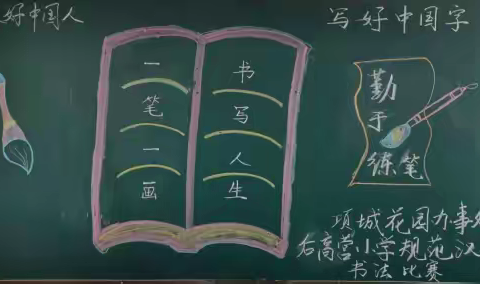 好中国人
写好中国字
一笔一画
书写人生
勤于
练笔
项城花园办事处
右高营小学规范汉
书法比赛